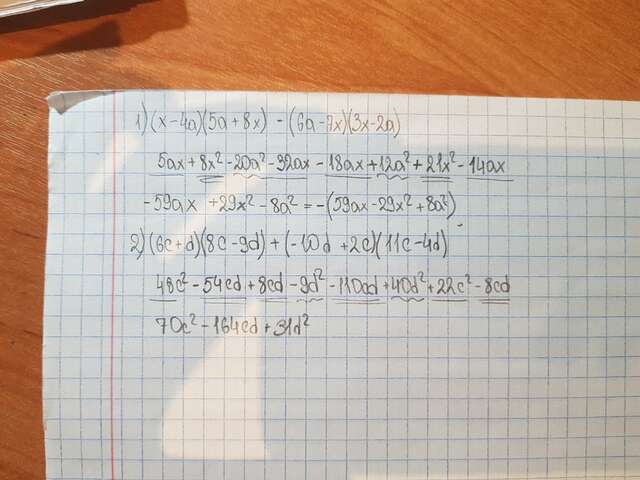 1) (x-4a)(5a+8x) - (6a-7x)(3x-2a)
5ax+8x²-20a²-32ax-18ax+12a²+21x²-14ax
-59ax +29x²-8a²=-(59ax-29x²+8a²)
2) (6c+d)(8c-9d)+(-10d+2c)(11c-4d)
48c²-54cd+8cd-9d²-110cd+40d²+22c²-8cd
70c²-164cd+31d²